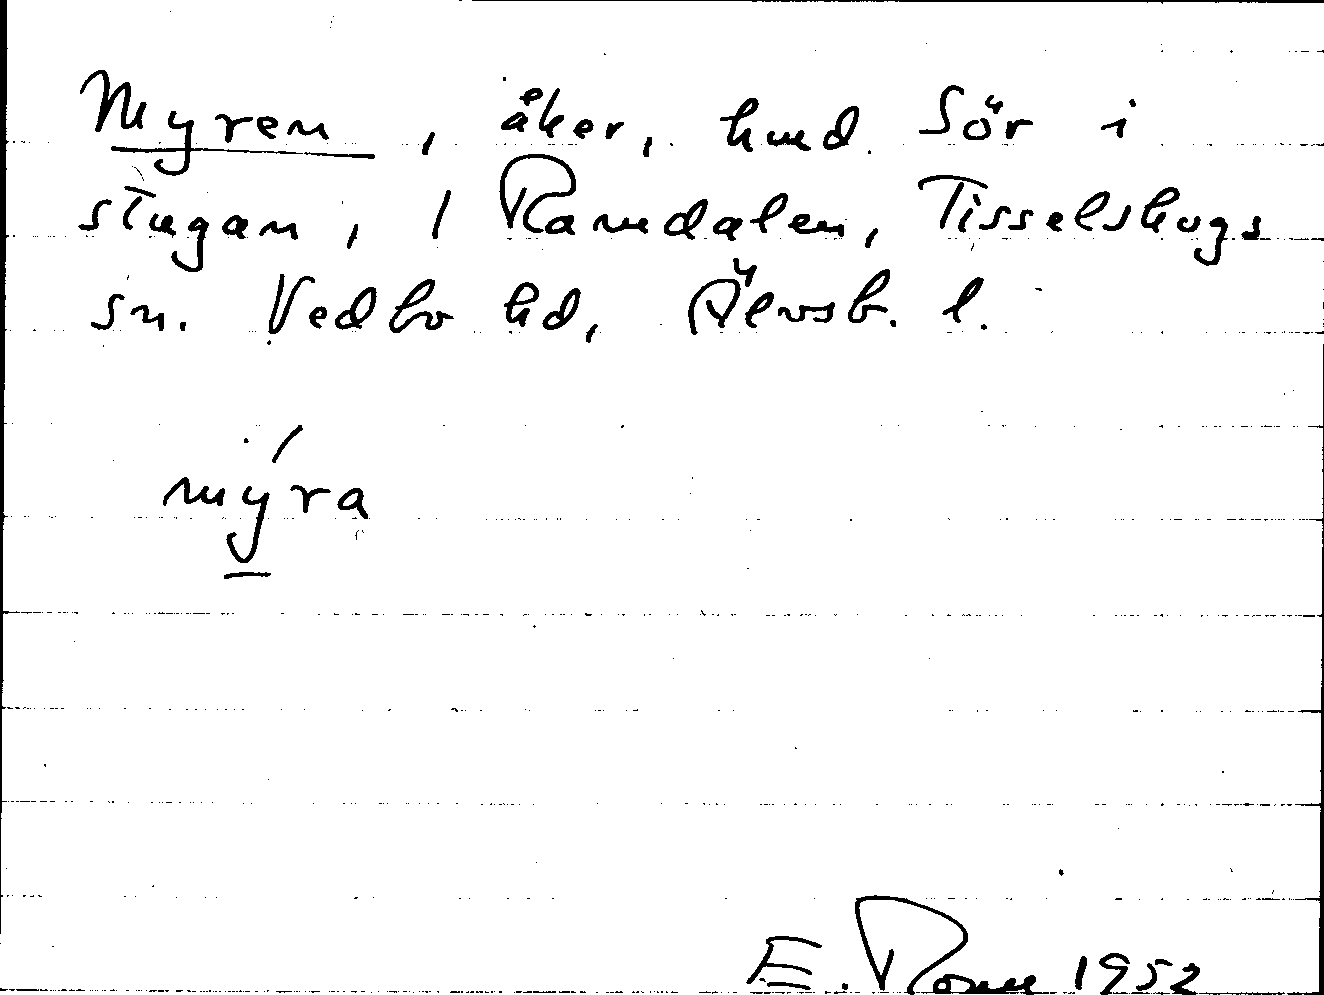 Myren, åker, hmd. Sör i
stugan, 1 Ramdalen, Tisselskogs
sn. Vedbo hd, Älvsb. l.
mýra
E. 1952